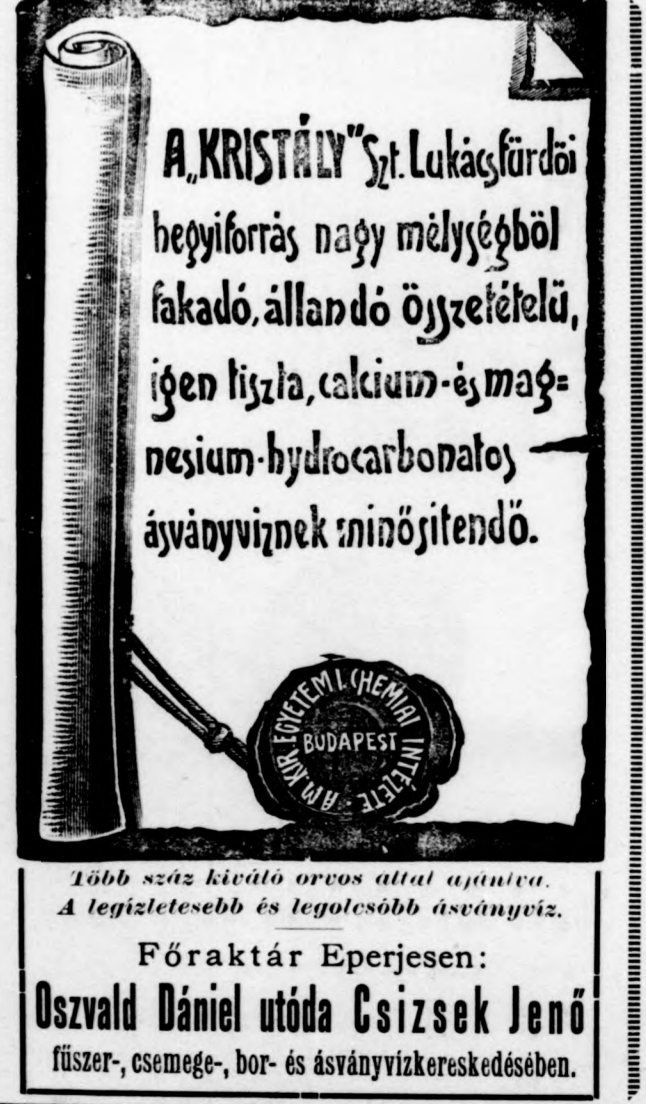 A „KRISTÁLY" Szt. Lukácsfürdői
hegyiforrás nagy mélységből
fakadó, állandó összetételű,
igen tiszta, calcium- és mag=
nesium-hydrocarbonatos
ásványviznek minősitendő.
A M. KIR. EGYETEM I. CHEMIAI INTÉZETE
BUDAPEST
Több száz kiváló orvos által ajánlva.
A legízletesebb és legolcsóbb ásványvíz.
Főraktár Eperjesen:
Oszvald Dániel utóda Csizsek Jenő
fűszer-, csemege-, bor- és ásványvízkereskedésében.